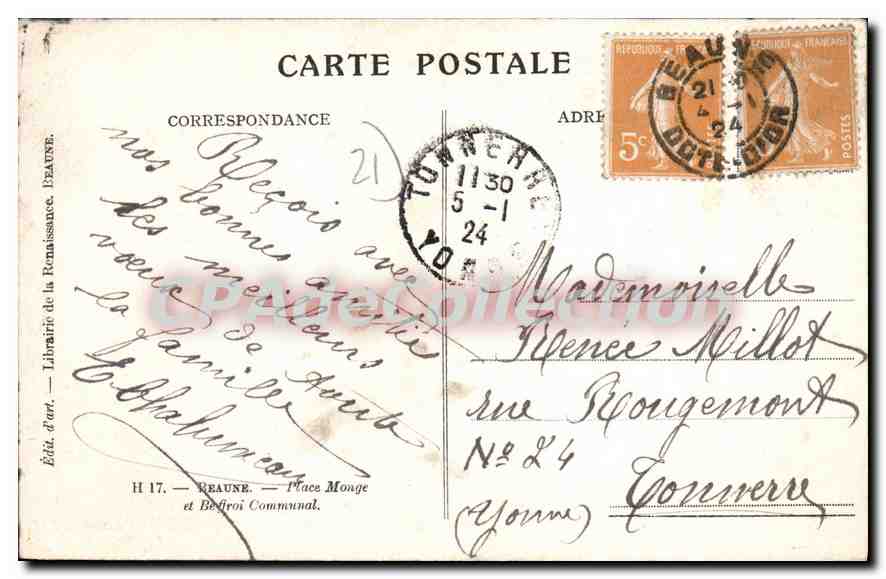 CARTE POSTALE
CORRESPONDANCE
ADRE
Reçois avec
nos bonnes amitiés
des meilleurs
vœux de toute
la famille
21)
TONNERRE
11 30
5 - 1
24
YONNE
REPUBLIQUE FRANÇAISE
5c
REPUBLIQUE FRANÇAISE
POSTES
BEAUNE
21
4 - 1
24
COTE-D'OR
Mademoiselle
Renée Millot
rue Rougemont
No 24
Tonnerre
(Yonne)
H 17. — BEAUNE. — Place Monge
et Beffroi Communal.
Édit. d'art. — Librairie de la Renaissance. BEAUNE.
CPAdeCollection